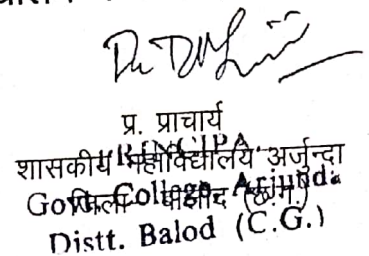 प्र. प्राचार्य
PRINCIPAL
शासकीय महाविद्यालय अर्जुन्दा
Govt. College, Arjunda
जिला - बालोद (छ.ग.)
Distt. Balod (C.G.)